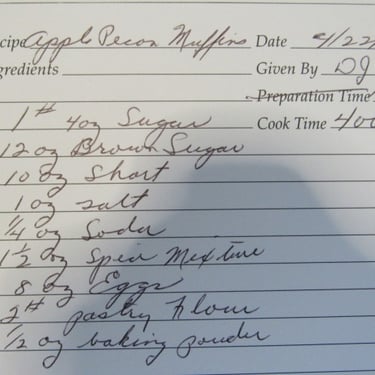 ecipe Apple Pecan Muffins Date 4/22/
gredients Given By DJ
Preparation Time
1# 4oz Sugar Cook Time 400
12 oz Brown Sugar
10 oz Short
1 oz salt
1/4 oz Soda
1 1/2 oz Spice Mixture
8 oz Eggs
2# pastry Flour
1/2 oz baking powder